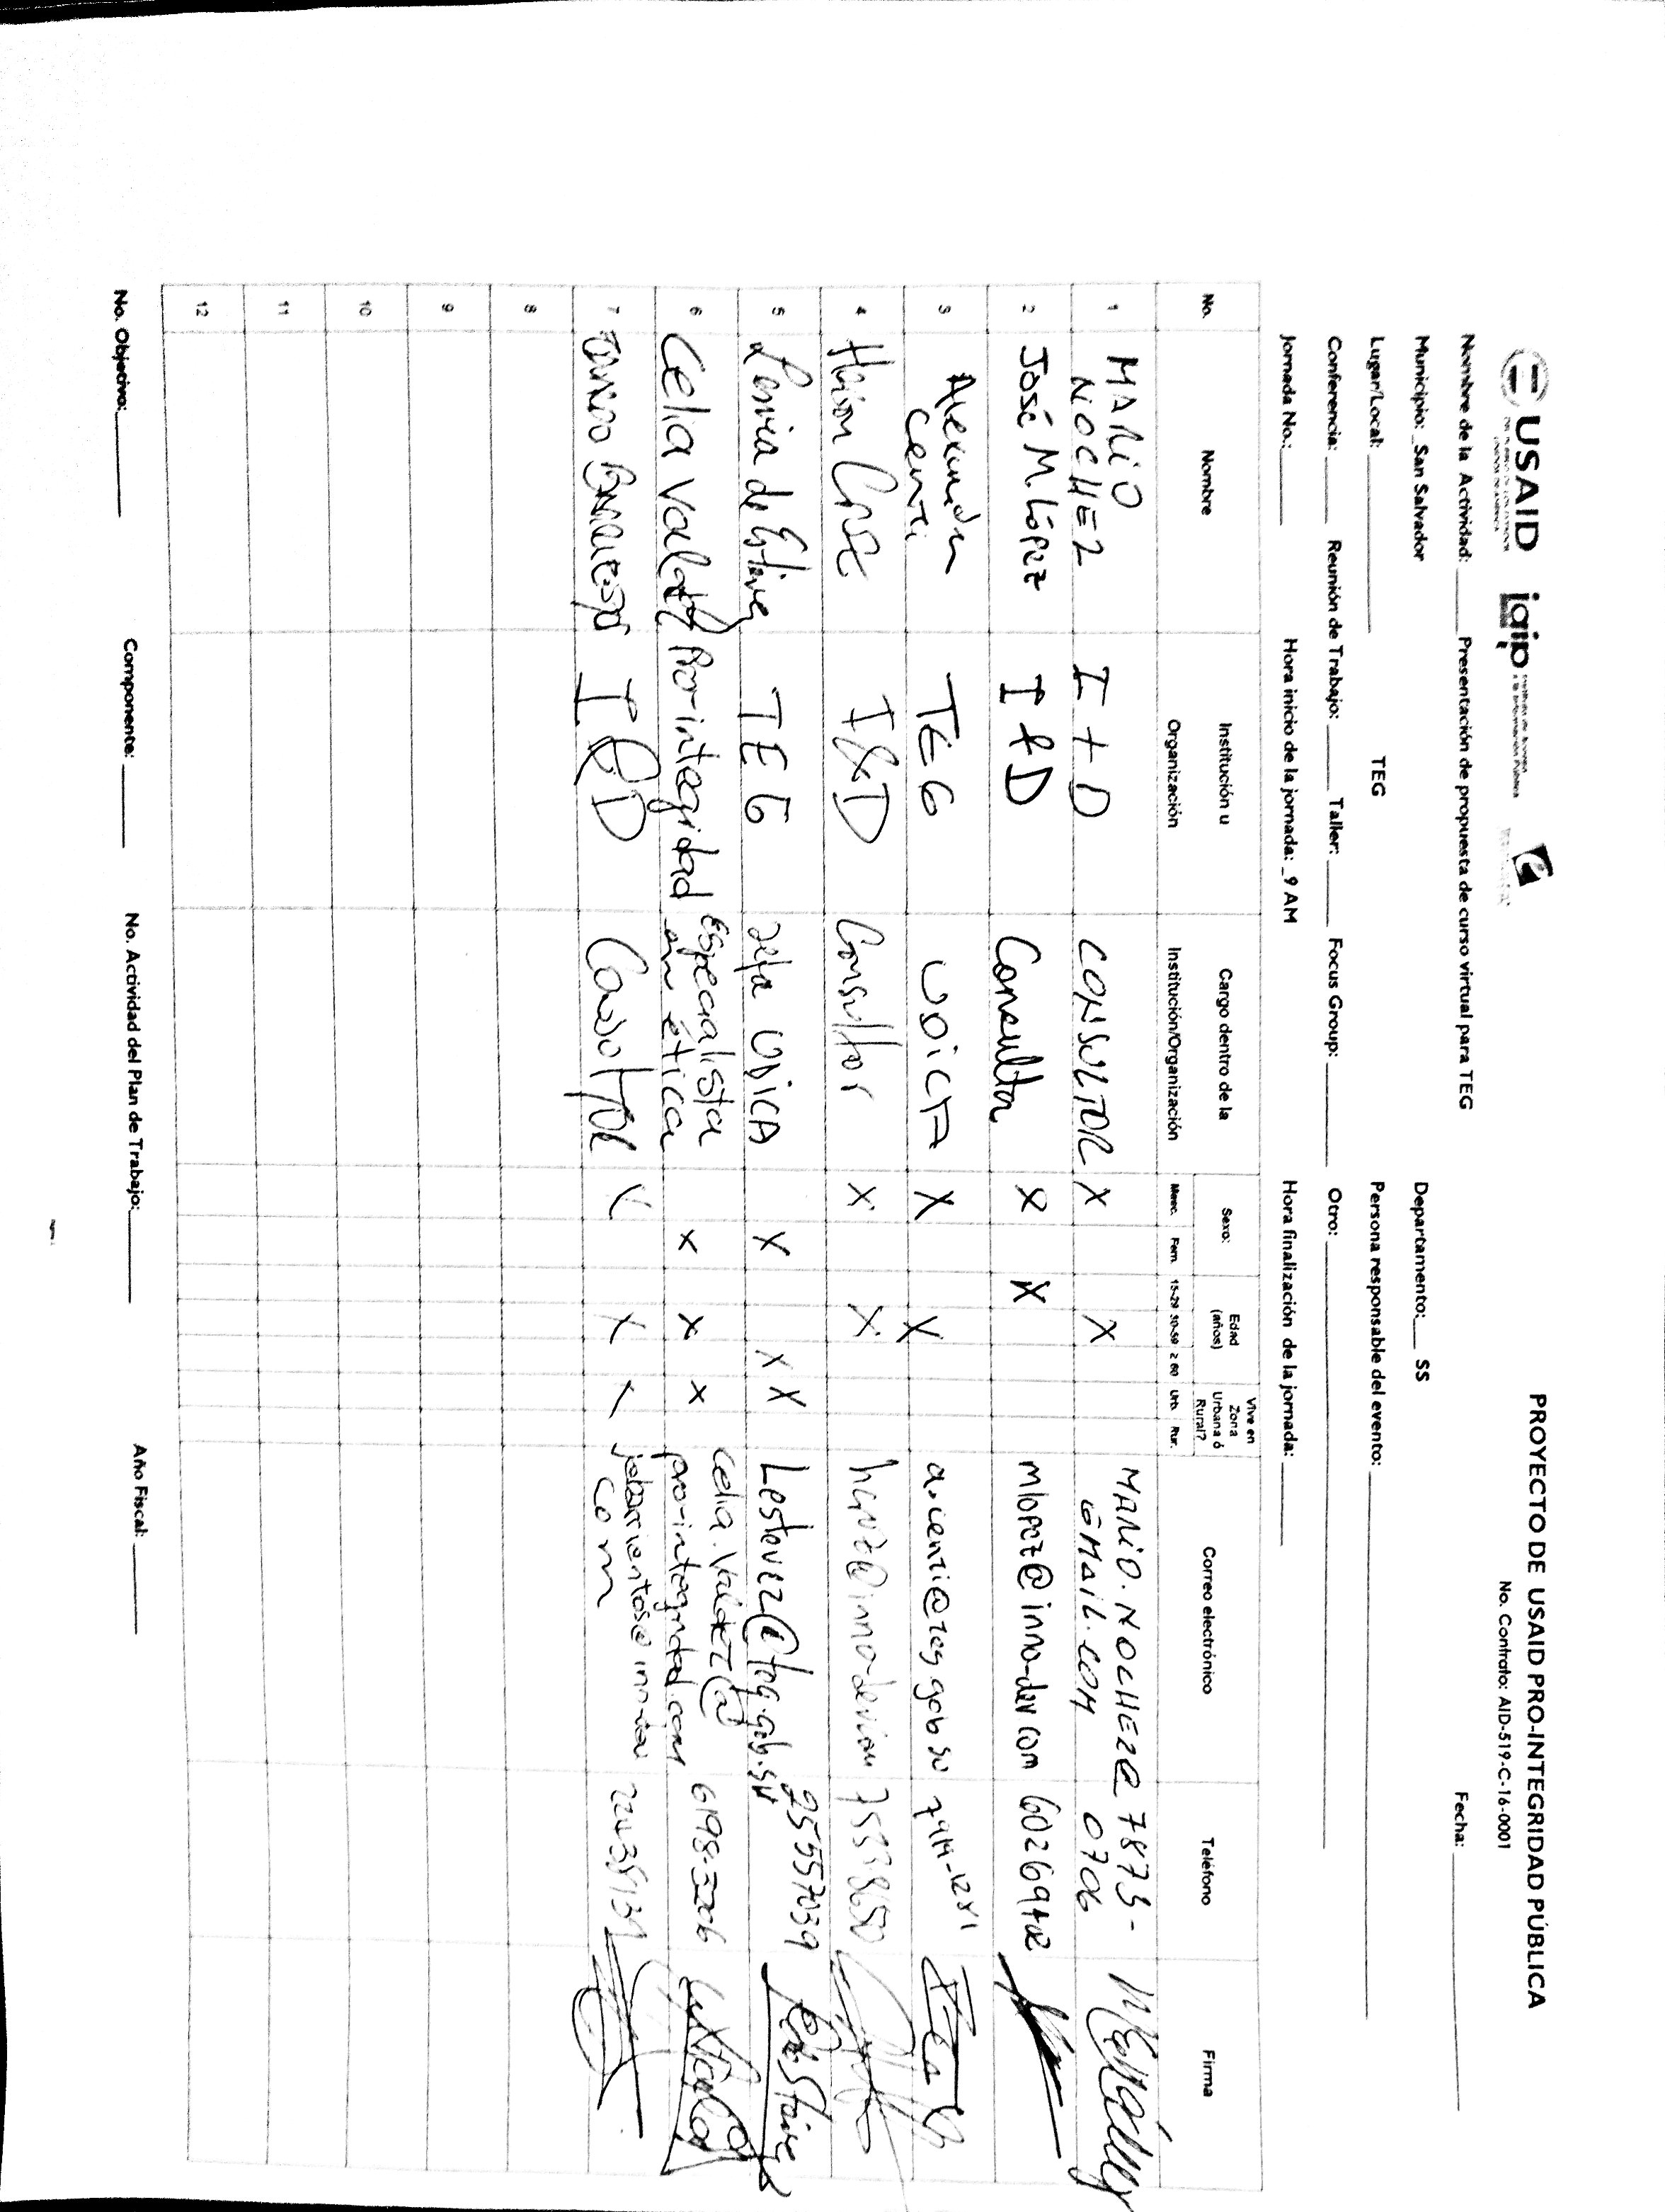 USAID
DEL PUEBLO DE LOS ESTADOS
UNIDOS DE AMÉRICA
iaip Instituto de Acceso
a la Información Pública
PROYECTO DE USAID PRO-INTEGRIDAD PÚBLICA
No. Contrato: AID-519-C-16-0001
Nombre de la Actividad: ______ Presentación de propuesta de curso virtual para TEG
Fecha: ______
Municipio: _San Salvador
Departamento:___ SS
Lugar/Local: ______ TEG
Persona responsable del evento: ______
Conferencia: ______ Reunión de Trabajo: ______ Taller: ______ Focus Group: ______ Otro: ______
Jornada No.:______ Hora inicio de la jornada: _9 AM Hora finalización de la jornada: ______
No. Nombre Institución u Organización Cargo dentro de la Institución/Organización Sexo: Edad (años) Vive en Zona Urbana ó Rural? Correo electrónico Teléfono Firma
Masc. Fem. 15-29 30-59 ≥ 60 Urb. Rur.
1 MARIO NOCHEZ I + D CONSULTOR X X MARIO.NOCHEZ@GMAIL.COM 7873-0706
2 José M. López I & D Consultor X X mlopez@inno-dev.com
3 Alexander TEG UDICA X X
4 Cruz I&D Consultor X X hcruz@inno-dev.com
5 Lesvia de Estévez TEG Jefa UDICA X X X Lestevez@teg.gob.sv 25557039
6 Celia Valdez Pro-integridad Especialista en ética X X X celia.valdez@pro-integridad.com 6198-3206
7 I&D Consultor X X X jebarrientos@inno-dev.com
8
9
10
11
12
No. Objetivo:______ Componente: ______ No. Actividad del Plan de Trabajo:______ Año Fiscal: ______